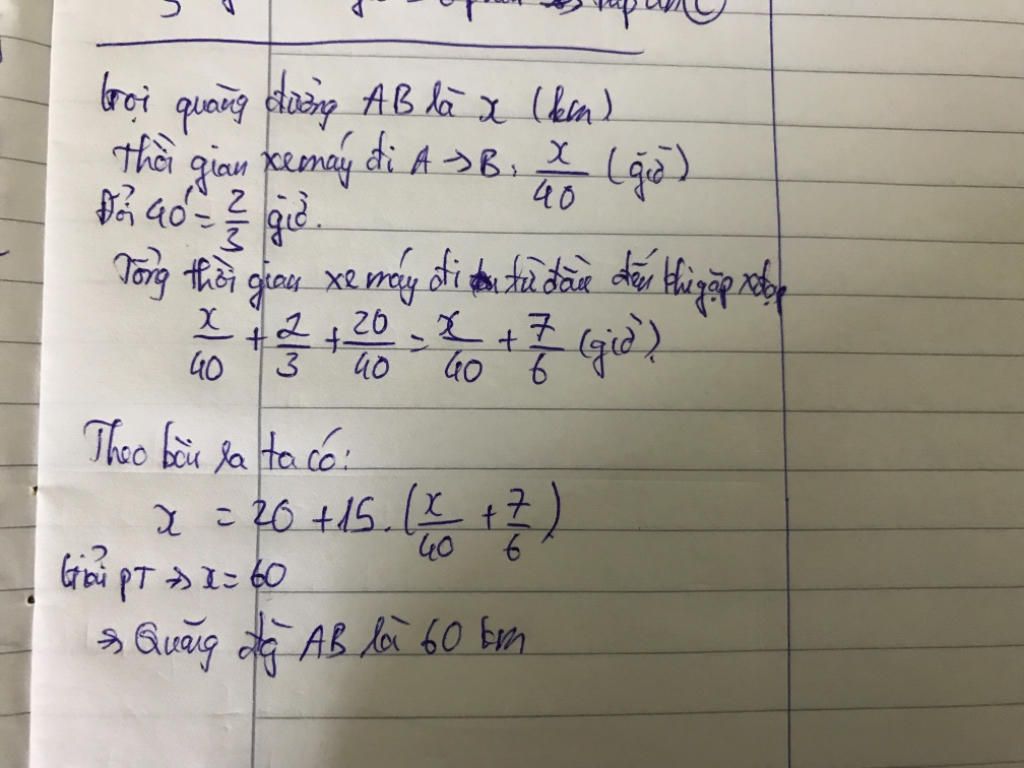 Gọi quãng đường AB là x (km)
Thời gian xe máy đi A → B: x/40 (giờ)
Đổi 40' = 2/3 giờ.
Tổng thời gian xe máy đi từ đầu đến khi gặp xđạp
x/40 + 2/3 + 20/40 = x/40 + 7/6 (giờ).
Theo bài ra ta có:
x = 20 + 15. (x/40 + 7/6)
Giải PT => x = 60
=> Quãng đg AB là 60 km